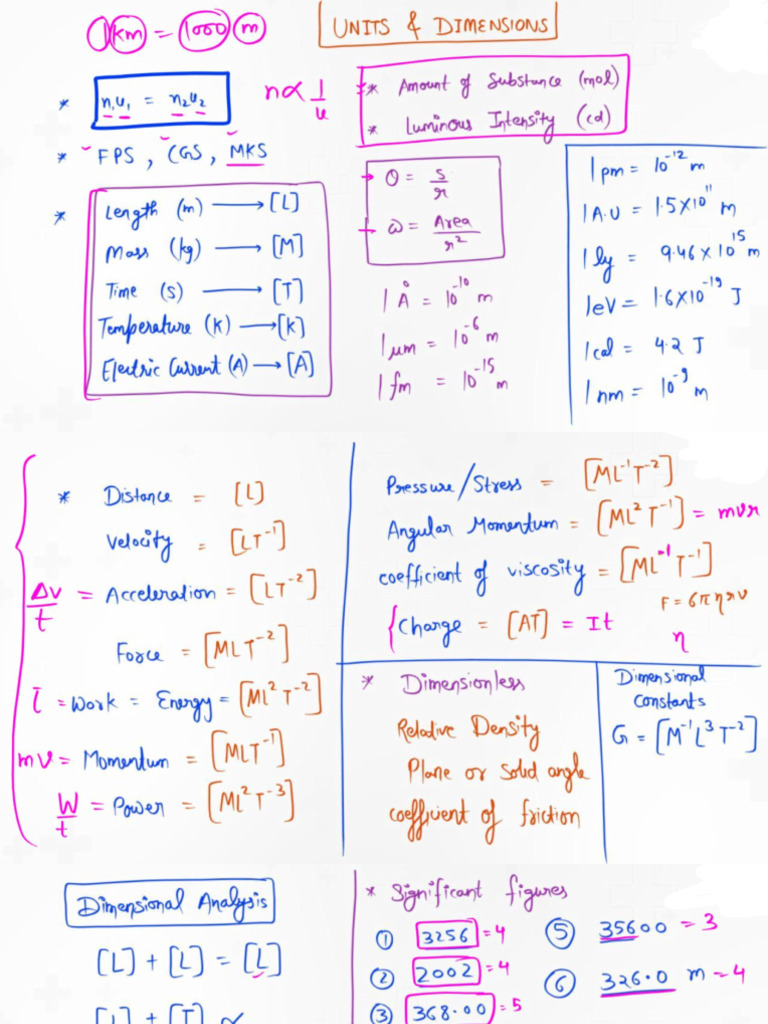 1km = 1000 m
UNITS & DIMENSIONS
* n₁u₁ = n₂u₂
n ∝ 1/u
* Amount of Substance (mol)
* Luminous Intensity (cd)
* FPS, CGS, MKS
* Length (m) → [L]
Mass (kg) → [M]
Time (s) → [T]
Temperature (K) → [K]
Electric Current (A) → [A]
θ = s/r
ω = Area/r²
1 Å = 10⁻¹⁰ m
1 μm = 10⁻⁶ m
1 fm = 10⁻¹⁵ m
1 pm = 10⁻¹² m
1 A.U = 1.5×10¹¹ m
1 ly = 9.46×10¹⁵ m
1eV = 1.6×10⁻¹⁹ J
1 cal = 4.2 J
1 nm = 10⁻⁹ m
* Distance = [L]
Velocity = [LT⁻¹]
Δv/t = Acceleration = [LT⁻²]
Force = [MLT⁻²]
τ = Work = Energy = [ML²T⁻²]
mv = Momentum = [MLT⁻¹]
W/t = Power = [ML²T⁻³]
Pressure/Stress = [ML⁻¹T⁻²]
Angular Momentum = [ML²T⁻¹] = mvr
coefficient of viscosity = [ML⁻¹T⁻¹]
F = 6πηrv
Charge = [AT] = It
η
* Dimensionless
Relative Density
Plane or Solid angle
coefficient of friction
Dimensional
Constants
G = [M⁻¹L³T⁻²]
Dimensional Analysis
[L] + [L] = [L]
[L] + [T] ×
* Significant figures
① 3256 = 4
② 2002 = 4
③ 368.00 = 5
⑤ 35600 = 3
⑥ 326.0 m = 4